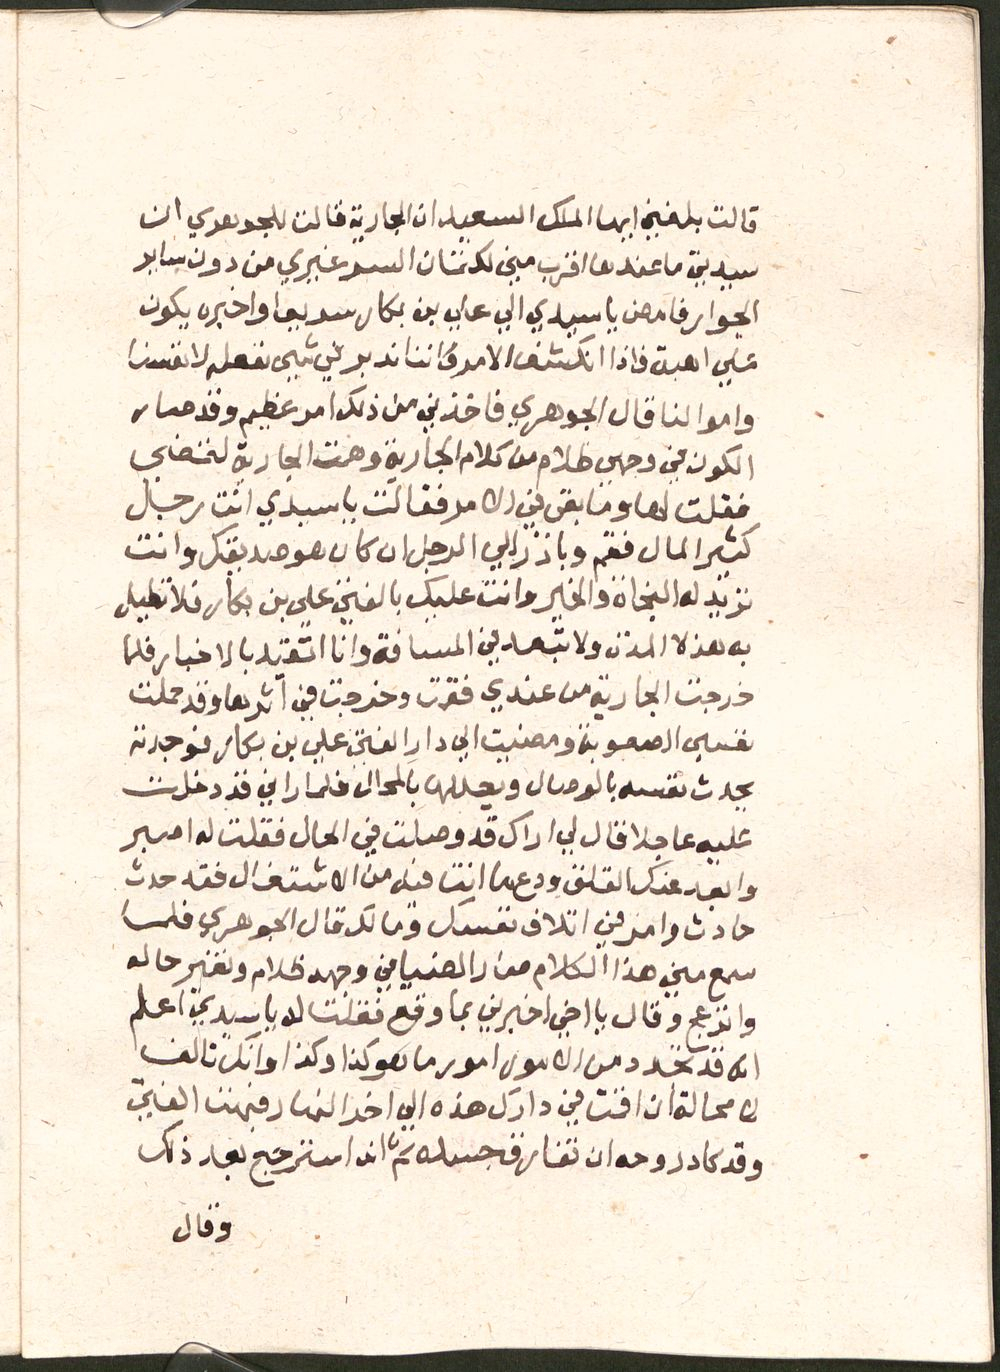 قالت بلغني ايها الملك السعيد ان الجارية قالت للجوهري ان
سيدتي ما عندها اقرب مني لكتمان السر غيري من دون ساير
الجوار فامض يا سيدي الي علي بن بكار سريعا واخبره يكون
علي اهبة فاذا انكشف الامر فاننا ندبر في شيي نفعله لانفسنا
واموالنا قال الجوهري فاخذني من ذلك امر عظيم وقد صار
الكون في وجهي ظلام من كلام الجارية وهمت الجارية لتمضي
فقلت لها وما بقي في الامر فقالت يا سيدي انت رجل
كثير المال فقم وباذر الي الرجل ان كان هو صديقك وانت
تريد له النجاة والخير وانت عليك بالفتي علي بن بكار فلا تطيل
به هذه المدة ولا تبعد في المسافة وانا اتقيد بالاخبار فلما
خرجت الجارية من عندي فقمت وخرجت في اثرها وقد حملت
نفسي الصعوبة ومضيت الي دار الفتي علي بن بكار فوجدته
يحدث نفسه بالوصال ويعللها بالمحال فلما راني قد دخلت
عليه عاجلا قال لي اراك قد وصلت في الحال فقلت له اصبر
وابعد عنك القلق ودع ما انت فيه من الاشتغال فقد حدث
حادث وامر في اتلاف نفسك ومالك قال الجوهري فلما
سمع مني هذا الكلام صار الضيا في وجهه ظلام وتغير حاله
وانزعج وقال يا اخي اخبرني بما وقع فقلت له يا سيدي اعلم
انه قد تجدد من الامور امور ما هو كذا وكذا وانك تالف
لا محالة ان اقمت في دارك هذه الي اخر النهار فبهت الفتي
وقد كادت روحه ان تفارق جسده ثم انه استرجع بعد ذلك
وقال